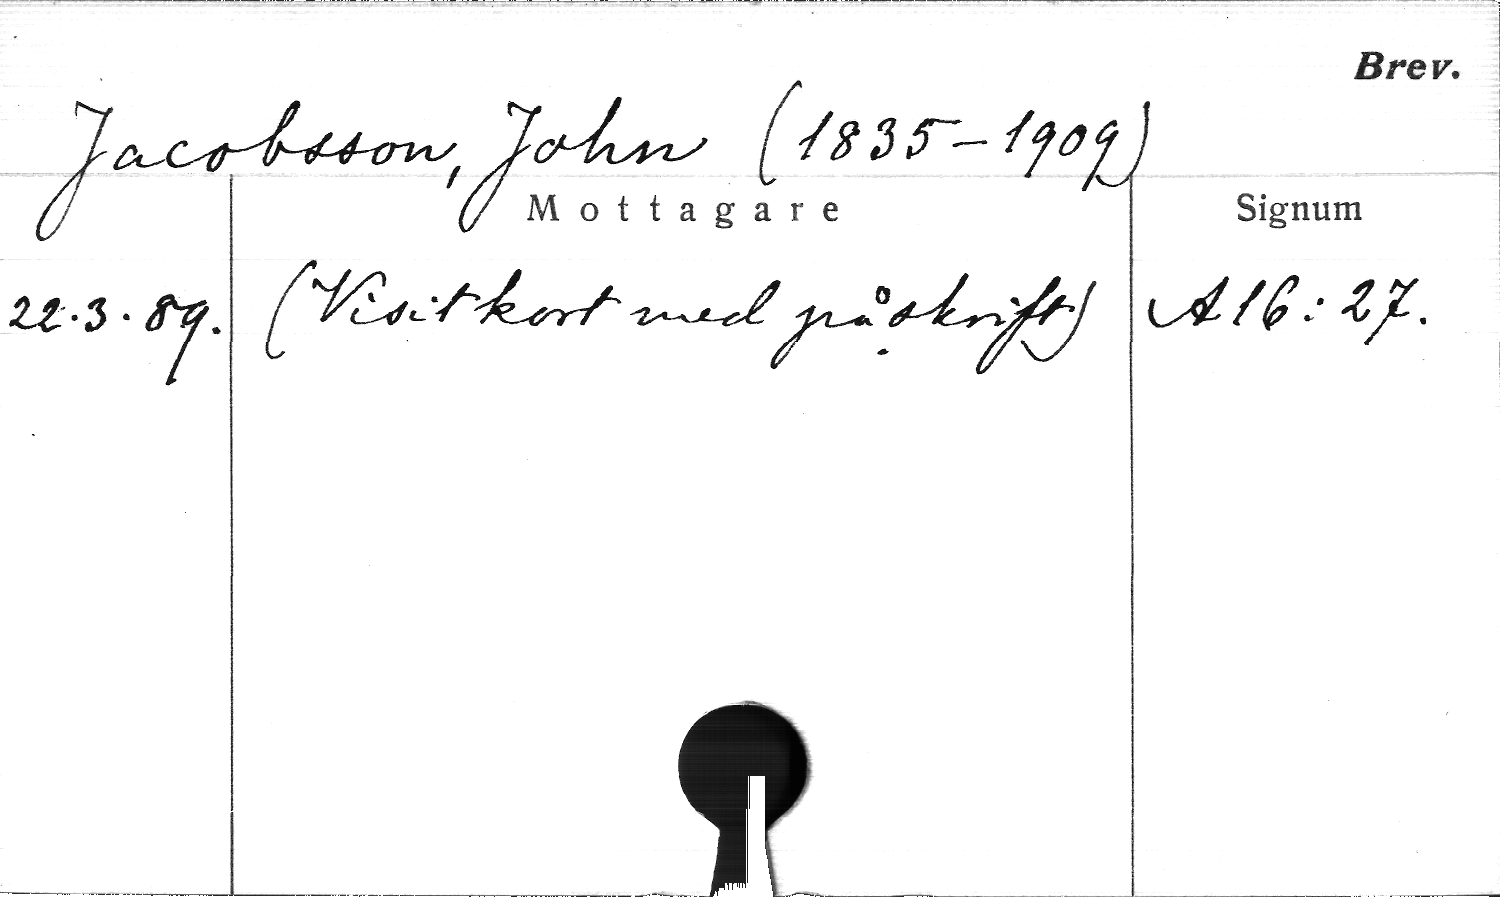 Brev.
Jacobsson, John (1835-1909)
Mottagare Signum
22.3.89. (Visitkort med påskrift) A16:27.